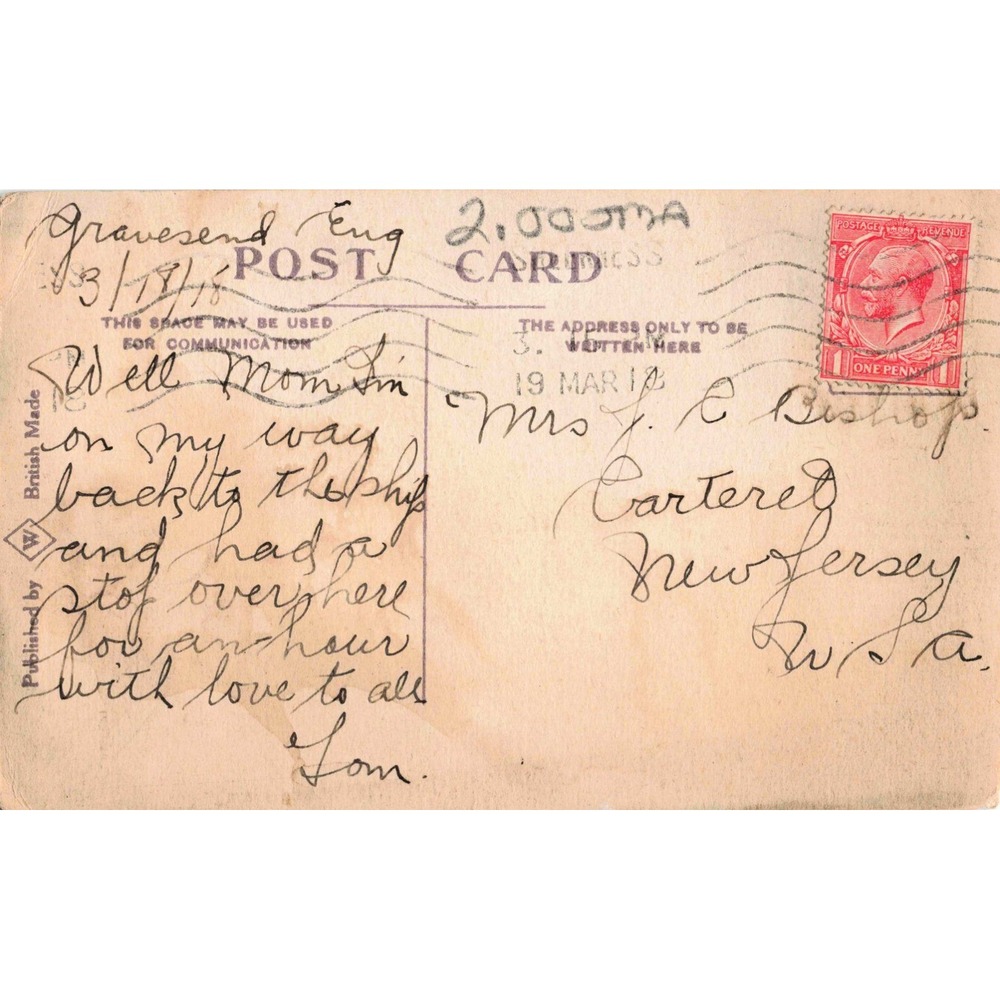 Gravesend Eng
3/18/18
2.00
POST CARD
THIS SPACE MAY BE USED
FOR COMMUNICATION
THE ADDRESS ONLY TO BE
WRITTEN HERE
19 MAR 18
POSTAGE REVENUE
1 ONE PENNY 1
Well Mom I'm
on my way
back to the ship
and had a
stop over here
for an hour
with love to all
Tom.
Mrs J. E Bishop.
Carteret
New Jersey
U S a.
Published by W British Made